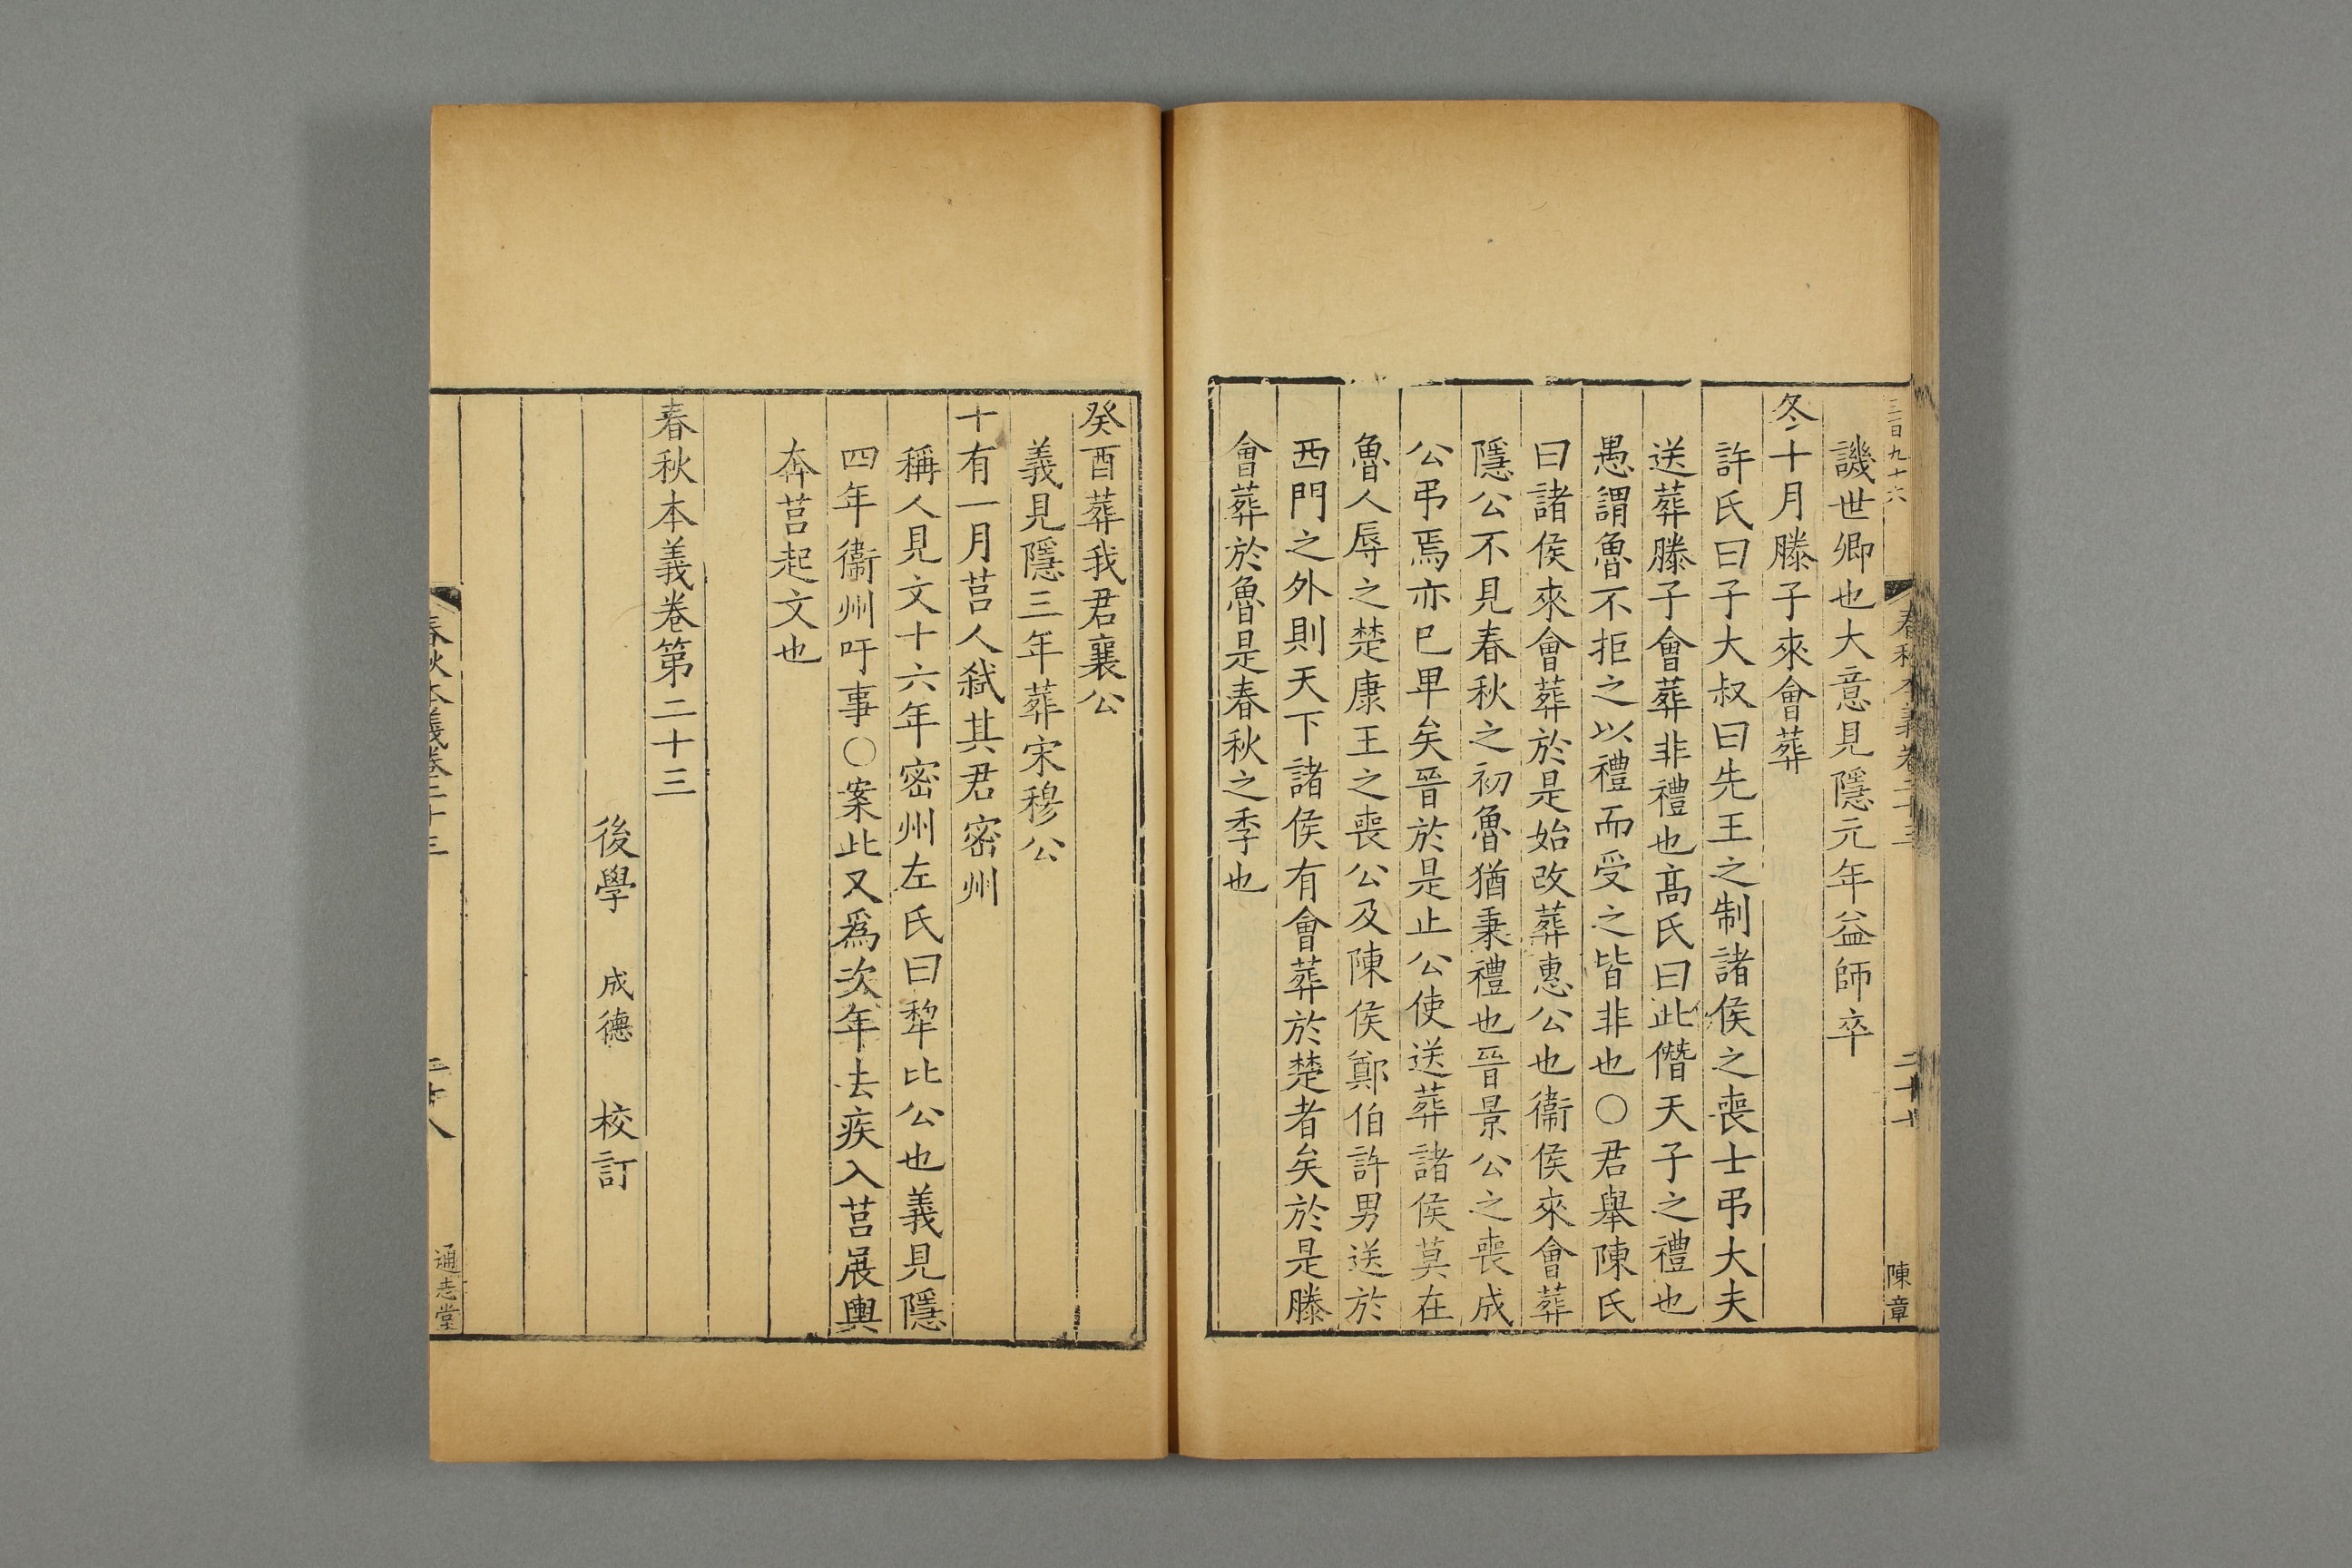 三百九十六
春秋本義卷二十三
二十七
陳章
譏世卿也大意見隱元年益師卒
冬十月滕子來會葬
許氏曰子大叔曰先王之制諸侯之喪士弔大夫
送葬滕子會葬非禮也髙氏曰此僭天子之禮也
愚謂魯不拒之以禮而受之皆非也〇君舉陳氏
曰諸侯來會葬於是始改葬惠公也衞侯來會葬
隱公不見春秋之初魯猶秉禮也晉景公之喪成
公弔焉亦巳甲矣晉於是止公使送葬諸侯莫在
魯人辱之楚康王之喪公及陳侯鄭伯許男送於
西門之外則天下諸侯有會葬於楚者矣於是滕
會葬於魯是春秋之季也
癸酉葬我君襄公
義見隱三年葬宋穆公
十有一月莒人弑其君密州
稱人見文十六年密州左氏曰犂比公也義見隱
四年衞州吁事〇案此又爲次年去疾入莒展輿
奔莒起文也
春秋本義卷第二十三
後學 成德 校訂
春秋本義卷二十三
二十八
通志堂